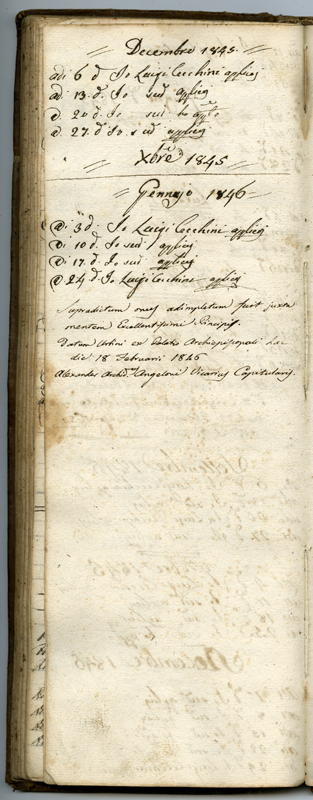 Decembre 1845.
adi 6 d.º Io Luigi Cecchini applicj
adi 13. d.º Io sud. applicj
a 20 d.º Io sud. to applic
a 27. d.º Io. sud. applicj
Xbre 1845
Gennajo 1846
A dì 3 d.º Io Luigi Cecchini applicj
A dì 10 d.º Io sud.º applicj
A dì 17 d.º Io sud applicj
A 24 d.º Io Luigi Cecchini applicj
Supradictum onus adimpletum fuit juxta
mentem Excellentissimi Principis.
Datum Urbini ex Palatio Archiepiscopali hac
die 18 Februarii 1846
Alexander Archid.nus Angeloni Vicarius Capitularis.